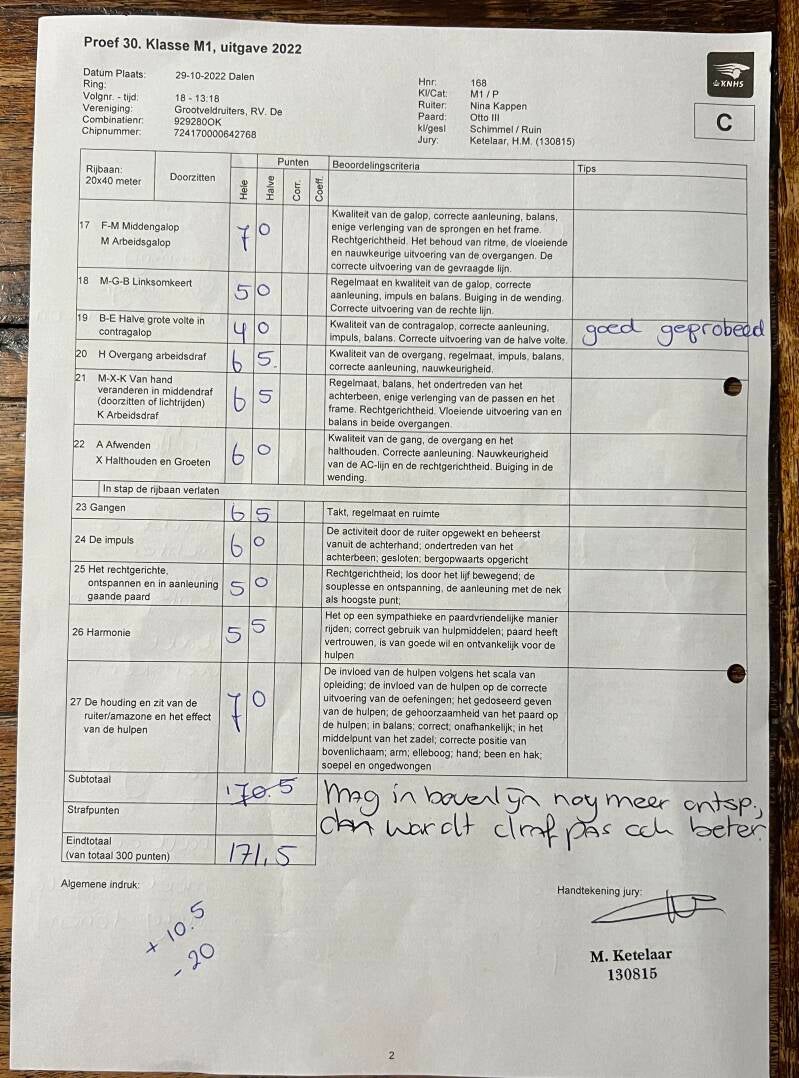 Proef 30. Klasse M1, uitgave 2022
Datum Plaats: 29-10-2022 Dalen
Ring:
Volgnr. - tijd: 18 - 13:18
Vereniging: Grootveldruiters, RV. De
Combinatienr: 929280OK
Chipnummer: 724170000642768
Hnr: 168
Kl/Cat: M1 / P
Ruiter: Nina Kappen
Paard: Otto III
kl/gesl Schimmel / Ruin
Jury: Ketelaar, H.M. (130815)
KNHS
C
Rijbaan:
20x40 meter
Doorzitten
Punten
Hele
Halve
Corr.
Coeff.
Beoordelingscriteria
Tips
17 F-M Middengalop
M Arbeidsgalop
7 0
Kwaliteit van de galop, correcte aanleuning, balans,
enige verlenging van de sprongen en het frame.
Rechtgerichtheid. Het behoud van ritme, de vloeiende
en nauwkeurige uitvoering van de overgangen. De
correcte uitvoering van de gevraagde lijn.
18 M-G-B Linksomkeert
5 0
Regelmaat en kwaliteit van de galop, correcte
aanleuning, impuls en balans. Buiging in de wending.
Correcte uitvoering van de rechte lijn.
19 B-E Halve grote volte in
contragalop
4 0
Kwaliteit van de contragalop, correcte aanleuning,
impuls, balans. Correcte uitvoering van de halve volte.
goed geprobeerd
20 H Overgang arbeidsdraf
6 5.
Kwaliteit van de overgang, regelmaat, impuls, balans,
correcte aanleuning, nauwkeurigheid.
21 M-X-K Van hand
veranderen in middendraf
(doorzitten of lichtrijden)
K Arbeidsdraf
6 5
Regelmaat, balans, het ondertreden van het
achterbeen, enige verlenging van de passen en het
frame. Rechtgerichtheid. Vloeiende uitvoering van en
balans in beide overgangen.
22 A Afwenden
X Halthouden en Groeten
6 0
Kwaliteit van de gang, de overgang en het
halthouden. Correcte aanleuning. Nauwkeurigheid
van de AC-lijn en de rechtgerichtheid. Buiging in de
wending.
In stap de rijbaan verlaten
23 Gangen
6 5
Takt, regelmaat en ruimte
24 De impuls
6 0
De activiteit door de ruiter opgewekt en beheerst
vanuit de achterhand; ondertreden van het
achterbeen; gesloten; bergopwaarts opgericht
25 Het rechtgerichte,
ontspannen en in aanleuning
gaande paard
5 0
Rechtgerichtheid; los door het lijf bewegend; de
souplesse en ontspanning, de aanleuning met de nek
als hoogste punt;
26 Harmonie
5 5
Het op een sympathieke en paardvriendelijke manier
rijden; correct gebruik van hulpmiddelen; paard heeft
vertrouwen, is van goede wil en ontvankelijk voor de
hulpen
27 De houding en zit van de
ruiter/amazone en het effect
van de hulpen
7 0
De invloed van de hulpen volgens het scala van
opleiding; de invloed van de hulpen op de correcte
uitvoering van de oefeningen; het gedoseerd geven
van de hulpen; de gehoorzaamheid van het paard op
de hulpen; in balans; correct; onafhankelijk; in het
middelpunt van het zadel; correcte positie van
bovenlichaam; arm; elleboog; hand; been en hak;
soepel en ongedwongen
Subtotaal 170.5
Strafpunten
Eindtotaal
(van totaal 300 punten)
171,5
Mag in bovenlijn nog meer ontsp.,
dan wordt draf pas ook beter.
Algemene indruk:
+ 10.5
- 20
Handtekening jury:
M. Ketelaar
130815
2